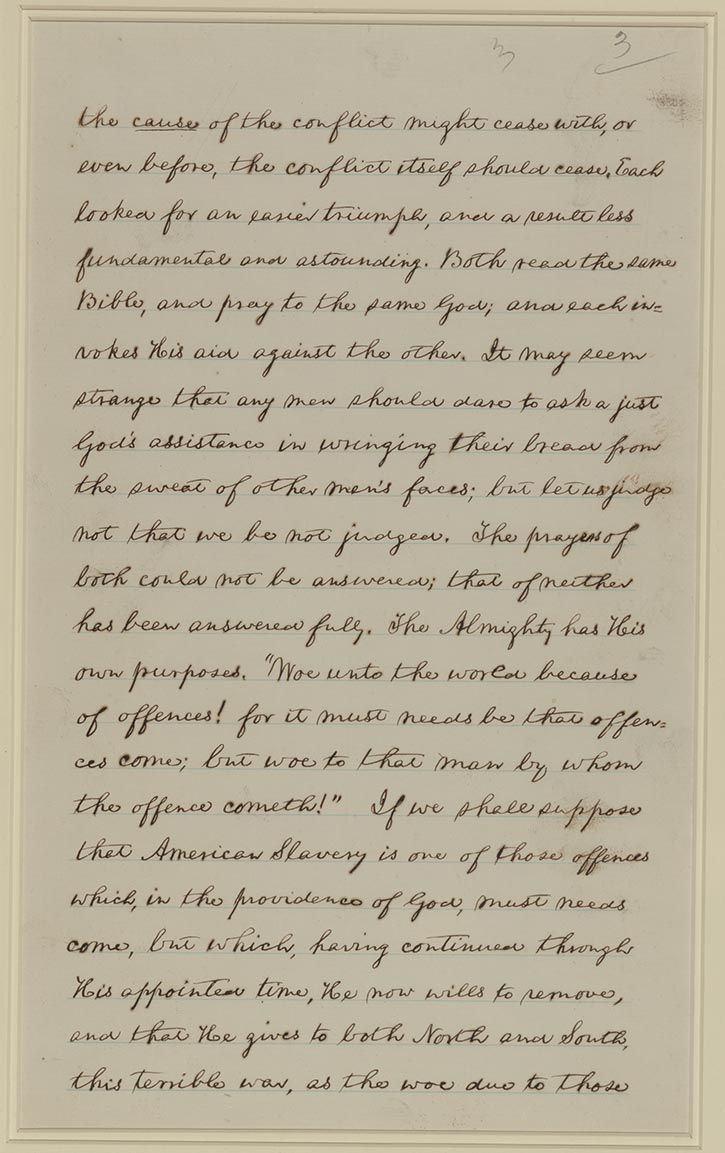 3 3
the cause of the conflict might cease with, or
even before, the conflict itself should cease. Each
looked for an easier triumph, and a result less
fundamental and astounding. Both read the same
Bible, and pray to the same God; and each in=
vokes His aid against the other. It may seem
strange that any men should dare to ask a just
God's assistance in wringing their bread from
the sweat of other men's faces; but let us judge
not that we be not judged. The prayers of
both could not be answered; that of neither
has been answered fully. The Almighty has His
own purposes. "Woe unto the world because
of offences! for it must needs be that offen=
ces come; but woe to that man by whom
the offence cometh!" If we shall suppose
that American Slavery is one of those offences
which, in the providence of God, must needs
come, but which, having continued through
His appointed time, He now wills to remove,
and that He gives to both North and South,
this terrible war, as the woe due to those